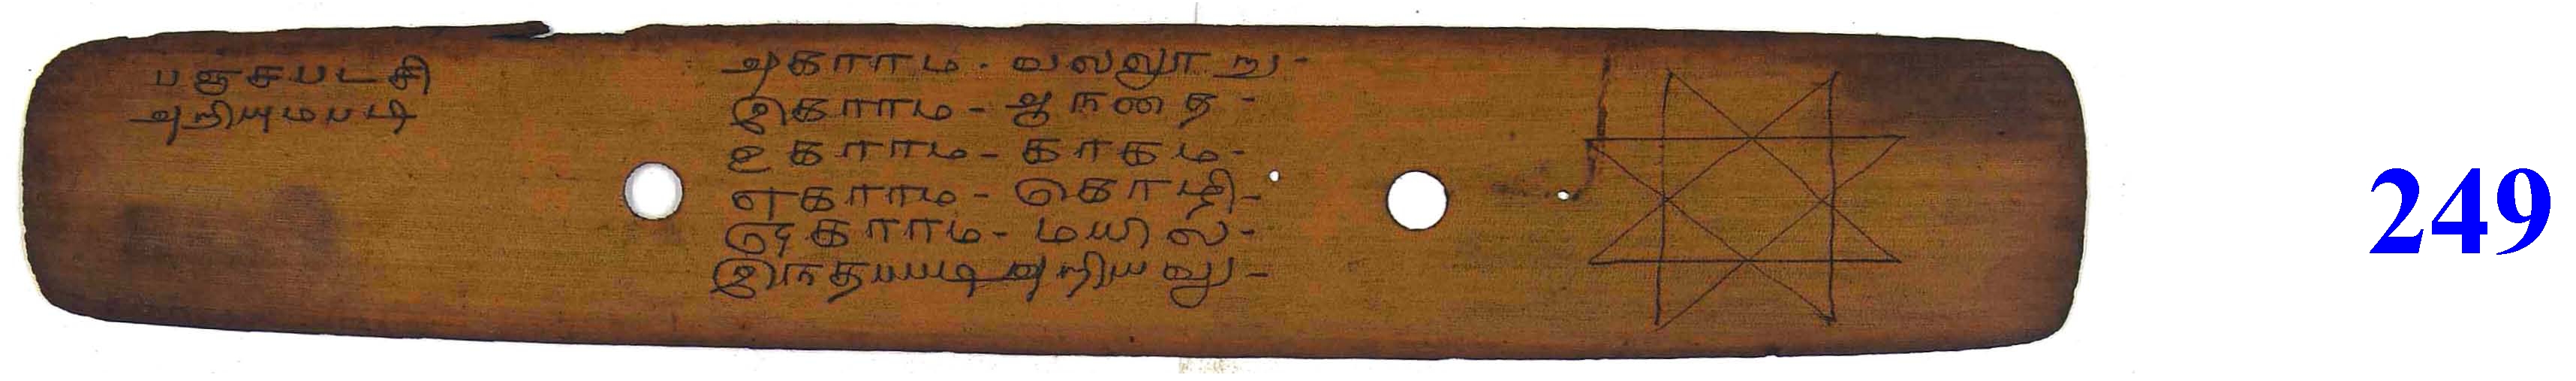 பஞசபடசி
அறியுமபடி
அகாரம - வலலூறு -
இகாரம - ஆநதை -
உகாரம - காகம -
எகாரம - கொழி -
ஒகாரம - மயில -
இநதபபடிஅறியவு -
249